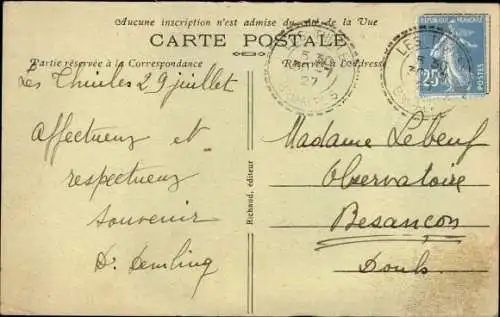 Aucune inscription n'est admise du de la Vue
CARTE POSTALE
Partie réservée à la Correspondance
Réservée à l'adresse
RÉPUBLIQUE FRANÇAISE
25c
POSTES
LES
27
Les Thuiles 29 juillet
Affectueux et
respectueux
souvenir
D.
Richaud, éditeur
Madame Lebeuf
Observatoire
Besançon
Doubs